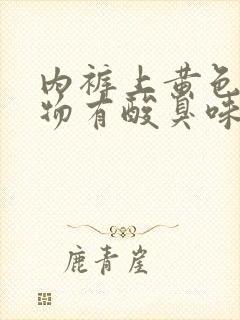 内裤上黄色
物有酸臭味
鹿青崖